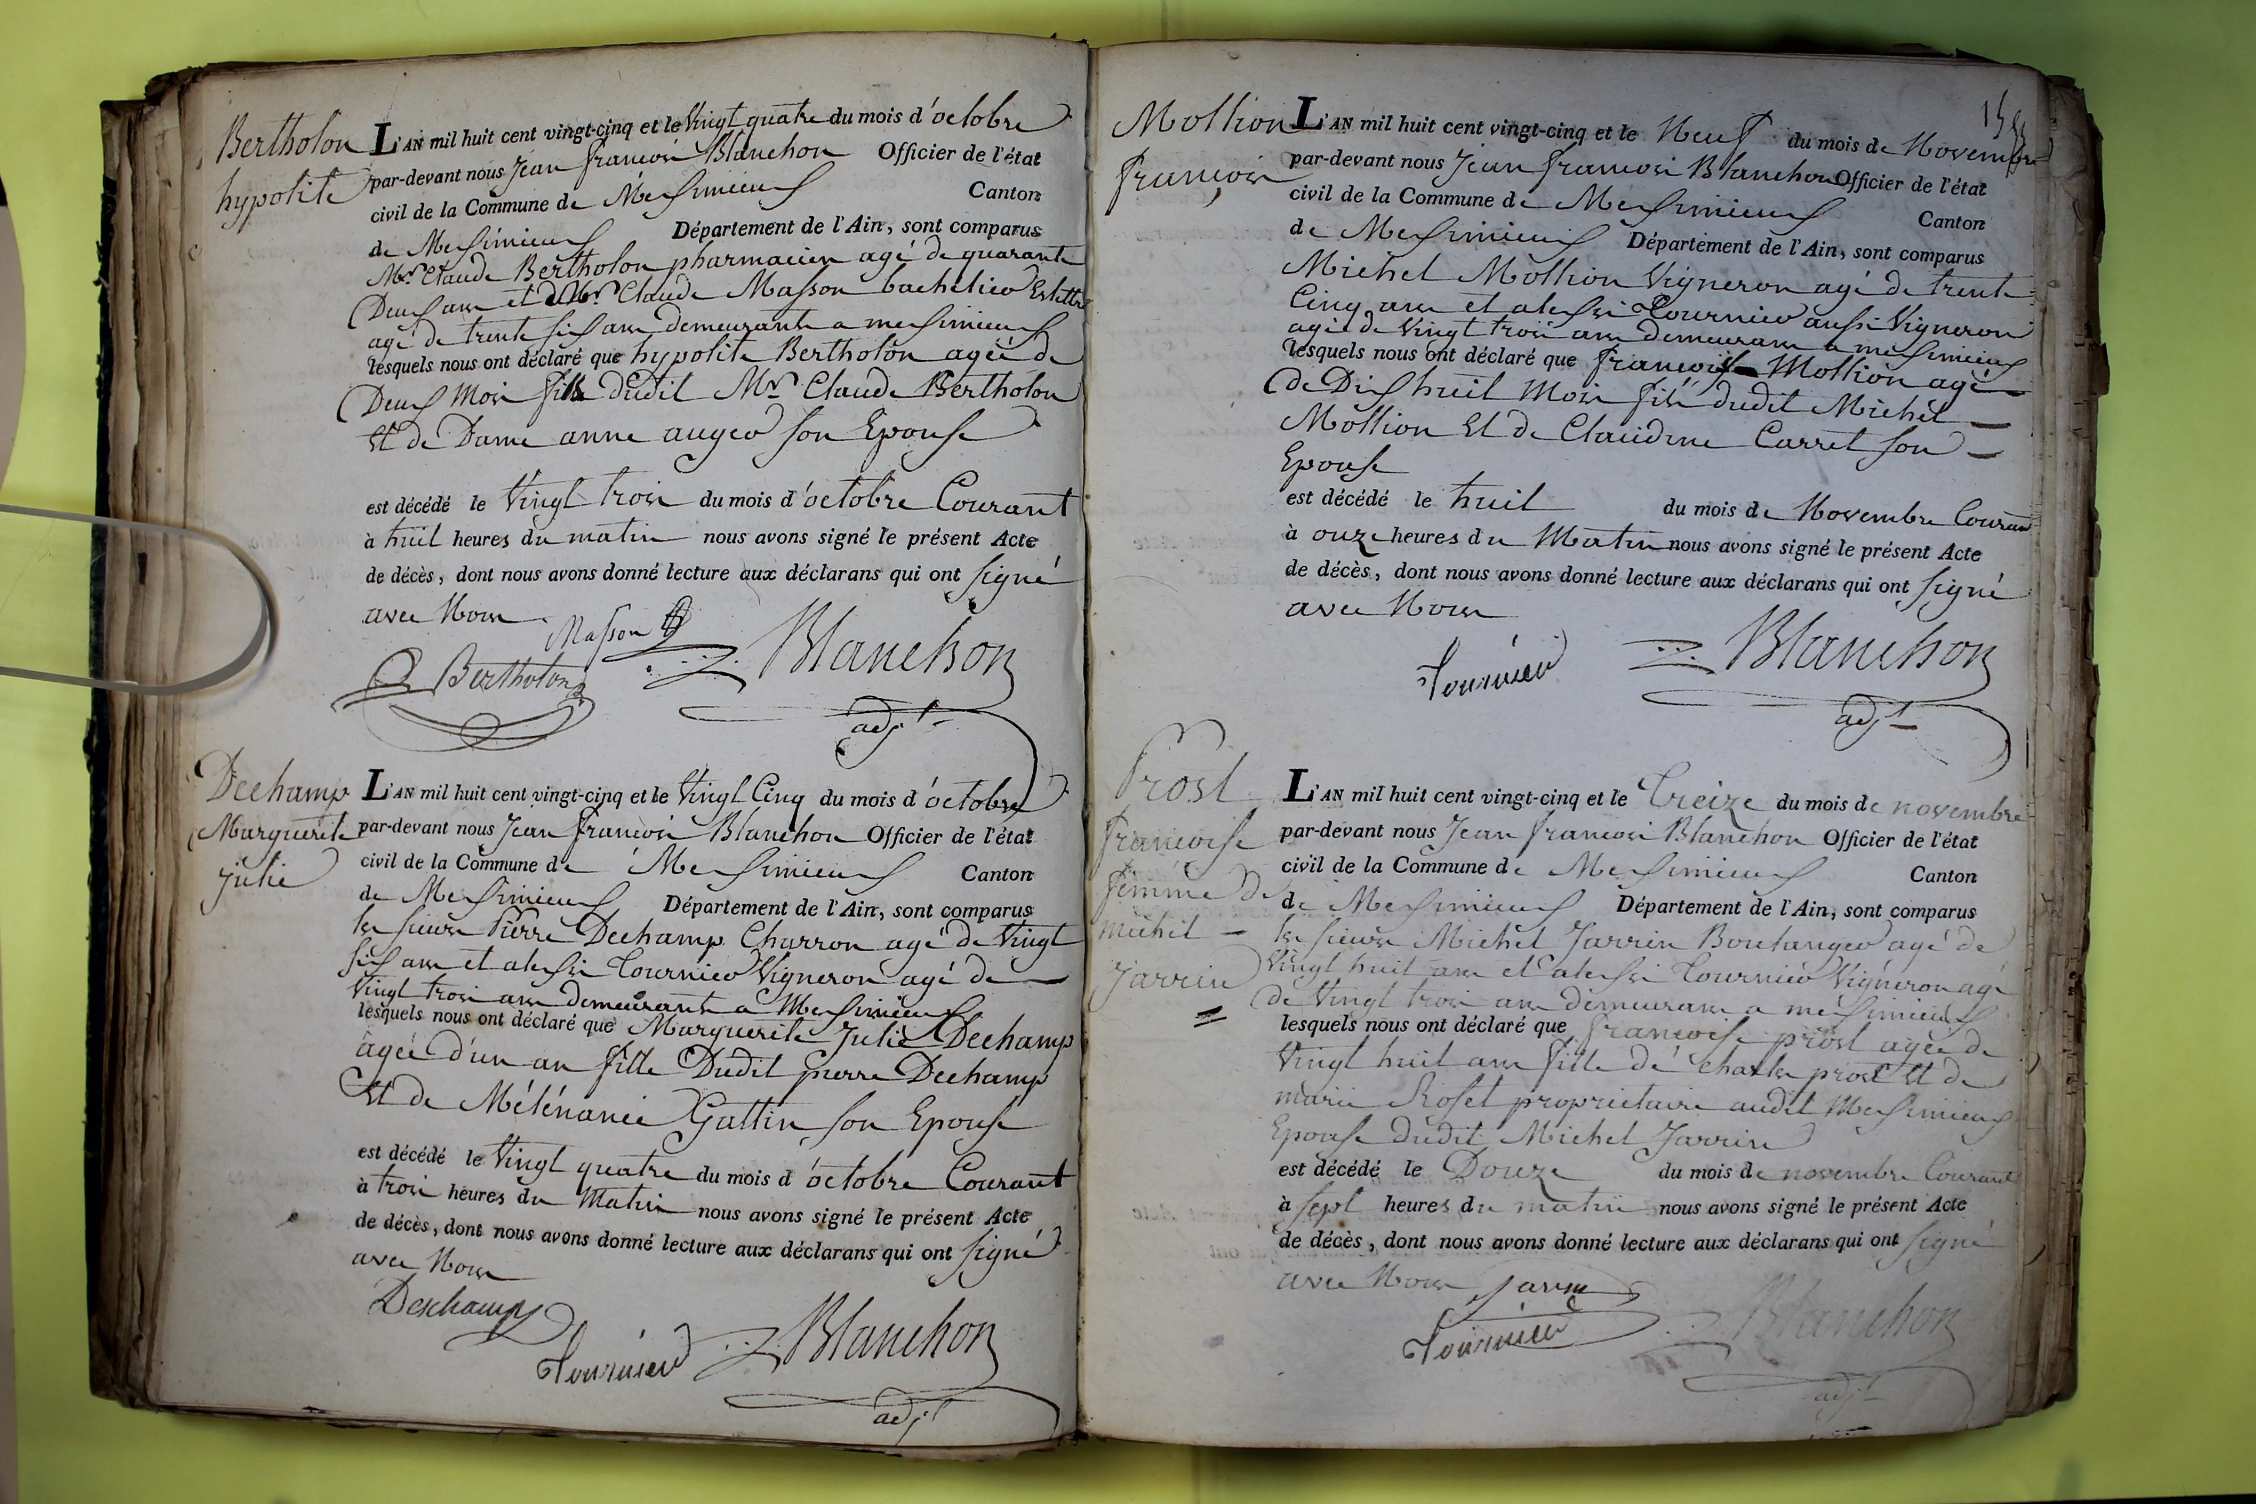 Bertholon
hypolite
L'AN mil huit cent vingt-cinq et le Vingt quatre du mois d'octobre
par-devant nous Jean françois Blanchon Officier de l'état
civil de la Commune de Meximieux Canton
de Meximieux Département de l'Ain, sont comparus
Mr. Claude Bertholon pharmacien agé de quarante
Deux ans et Mr. Claude Masson bachelier Es lettre
agé de trente six ans demeurants a meximieux
lesquels nous ont déclaré que hypolite Bertholon ageé de
Deux mois fils dudit Mr. Claude Bertholon
et de Dame anne auger son Epouse
est décédé le Vingt trois du mois d'octobre Courant
à huit heures du matin nous avons signé le présent Acte
de décès, dont nous avons donné lecture aux déclarans qui ont signé
avec Nous
Masson
Bertholon
Blanchon
adjt
Dechamp
Marguerite
julie
L'AN mil huit cent vingt-cinq et le Vingt Cinq du mois d'octobre
par-devant nous Jean françois Blanchon Officier de l'état
civil de la Commune de Meximieux Canton
de Meximieux Département de l'Ain, sont comparus
les sieurs Pierre Dechamp Charron agé de Vingt
six ans et alexi Tournier Vigneron agé de
Vingt trois ans demeurants a Meximieux
lesquels nous ont déclaré que Marguerite Julie Dechamp
ageé d'un an fille Dudit pierre Dechamp
et de Mélénanie Gattin son Epouse
est décédé le Vingt quatre du mois d'octobre Courant
à trois heures du Matin nous avons signé le présent Acte
de décès, dont nous avons donné lecture aux déclarans qui ont signé
avec Nous
Deschamp
Tournier
Blanchon
adjt
Mollion
françois
L'AN mil huit cent vingt-cinq et le Neuf du mois de Novembre
par-devant nous Jean françois Blanchon Officier de l'état
civil de la Commune de Meximieux Canton
de Meximieux Département de l'Ain, sont comparus
Michel Mollion Vigneron agé de trente
Cinq ans et alexi Tournier aussi Vigneron
agé de Vingt trois ans demeurans a meximieux
lesquels nous ont déclaré que françois Mollion agé
de Dix huit Mois fils dudit Michel
Mollion et de Claudine Carret son
Epouse
est décédé le huit du mois de Novembre Courant
à onze heures du Matin nous avons signé le présent Acte
de décès, dont nous avons donné lecture aux déclarans qui ont signé
avec Nous
Tournier
Blanchon
adjt
Prost
françoise
femme de
michel
Jarrin
L'AN mil huit cent vingt-cinq et le Treize du mois de novembre
par-devant nous Jean françois Blanchon Officier de l'état
civil de la Commune de Meximieux Canton
de Meximieux Département de l'Ain, sont comparus
les sieurs Michel Jarrin Boulanger agé de
Vingt huit ans et alexi Tournier Vigneron agé
de Vingt trois ans demeurans a meximieux
lesquels nous ont déclaré que françoise prost agée de
Vingt huit ans fille de charles prost et de
marie Roset proprietaire audit Meximieux
Epouse dudit Michel Jarrin
est décédé le Douze du mois de novembre Courant
à sept heures du matin nous avons signé le présent Acte
de décès, dont nous avons donné lecture aux déclarans qui ont signé
avec Nous
Jarrin
Tournier
Blanchon
adjt